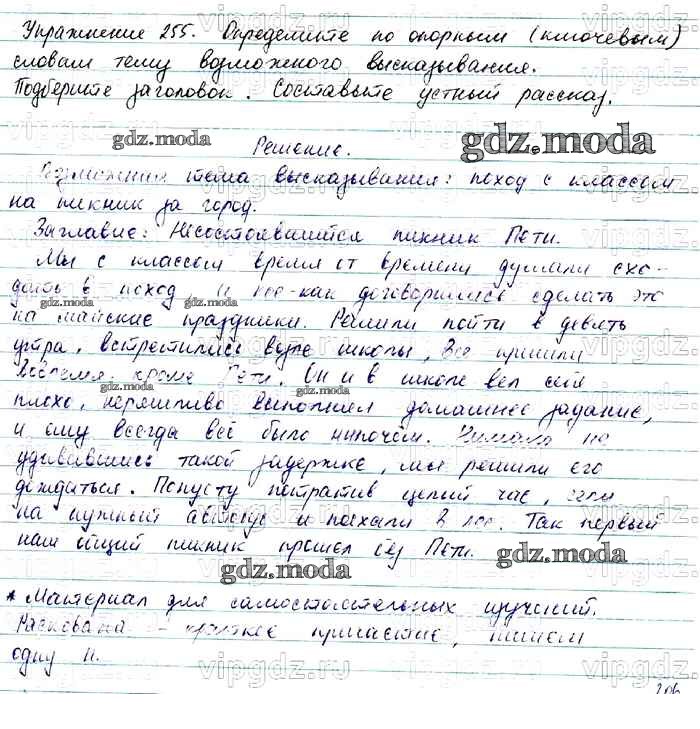 Упражнение 255. Определите по опорным (ключевым)
словам тему возможного высказывания.
Подберите заголовок. Составьте устный рассказ.
Решение.
Возможная тема высказывания: поход с классом
на пикник за город.
Заглавие: Несостоявшийся пикник Пети.
Мы с классом время от времени думали схо-
дить в поход и все-как договорились сделать это
на майские праздники. Решили пойти в девять
утра, встретились возле школы, Все пришли
вовремя, кроме Пети. Он и в школе вел себя
плохо, неряшливо выполнял домашнее задание,
и ему всегда всё было нипочём. Нимало не
удивившись такой задержке, мы решили его
дождаться. Попусту потратив целый час, сели
на нужный автобус и поехали в лес. Так первый
наш общий пикник прошел без Пети.
* Материал для самостоятельных изучений.
Раскована - краткое причастие, пишем
одну н.
206
gdz.moda
gdz.moda
gdz.moda
gdz.moda
gdz.moda
gdz.moda
gdz.moda
gdz.moda
vipgdz.ru